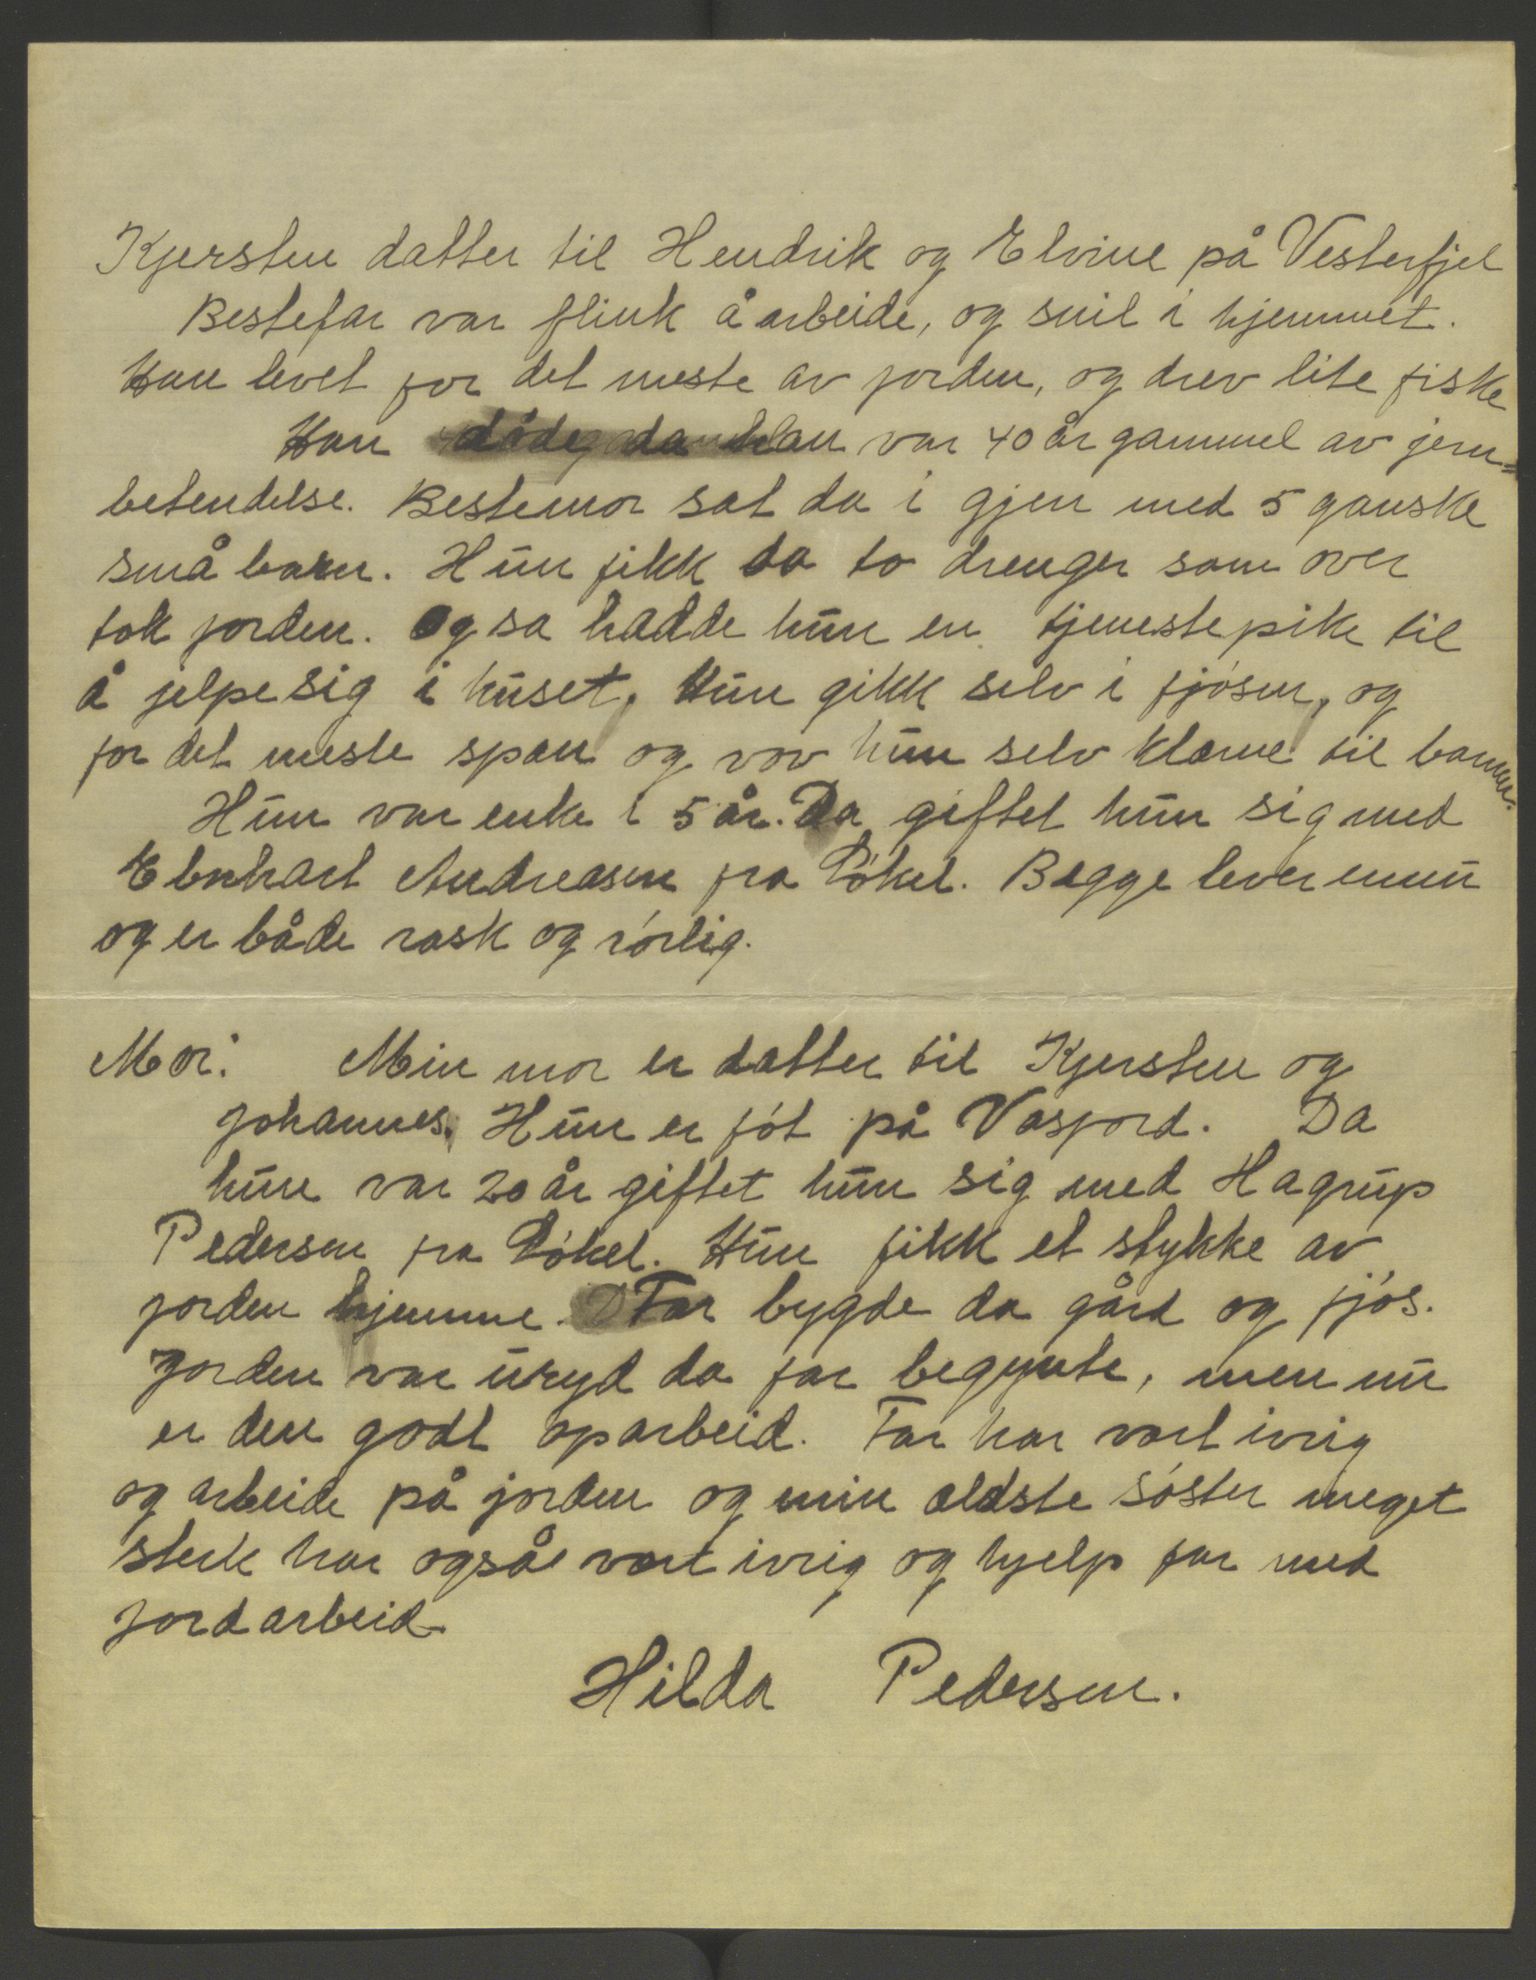 Kjersten datter til Hendrik og Elvine på Vesterfjel
Bestefar var flink å arbeide, og snil i hjemmet.
Han levet for det meste av jorden, og drev lite fiske
Han döde da han var 40 år gammel av jern=
betendelse. Bestemor sat da i gjen med 5 ganske
små barn. Hun fikk da to drenger som over
tok jorden. Og sa hadde hun en tjenestepike til
å jelpe sig i huset. Hun gikk selv i fjösen, og
for det meste span og vov hun selv klærne til barnen.
Hun var enke i 5 år. Da giftet hun sig med
Ebnhart Andreasen fra Lökel. Begge lever ennu
og er både rask og rörlig.
Mor: Min mor er datter til Kjersten og
Johannes. Hun er föt på Vasjord. Da
hun var 20 år giftet hun sig med Hagrup
Pedersen fra Lökel. Hun fikk et stykke av
jorden hjemme. Far bygde da gård og fjös.
Jorden var uryd da far begynte, men nu
er den godt oparbeid. Far har vært ivrig
og arbeide på jorden og min ældste söster meget
sterk har også vært ivrig og hjelp far med
jordarbeid.
Hilda Pedersen.